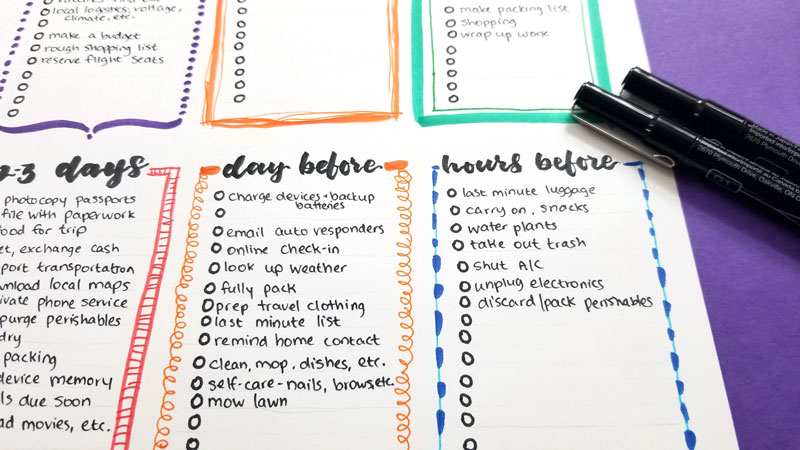 local logistics: voltage,
climate, etc.
make a budget
rough shopping list
reserve flight seats
make packing list
shopping
wrap up work
2-3 days
photocopy passports
file with paperwork
food for trip
exchange cash
transportation
local maps
phone service
purge perishables
packing
device memory
due soon
movies, etc.
day before
charge devices + backup
batteries
email auto responders
online check-in
look up weather
fully pack
prep travel clothing
last minute list
remind home contact
clean, mop, dishes, etc.
self-care - nails, brows, etc.
mow lawn
hours before
last minute luggage
carry on, snacks
water plants
take out trash
shut A/C
unplug electronics
discard/pack perishables
2670 Plymouth Drive, Oakville, ON